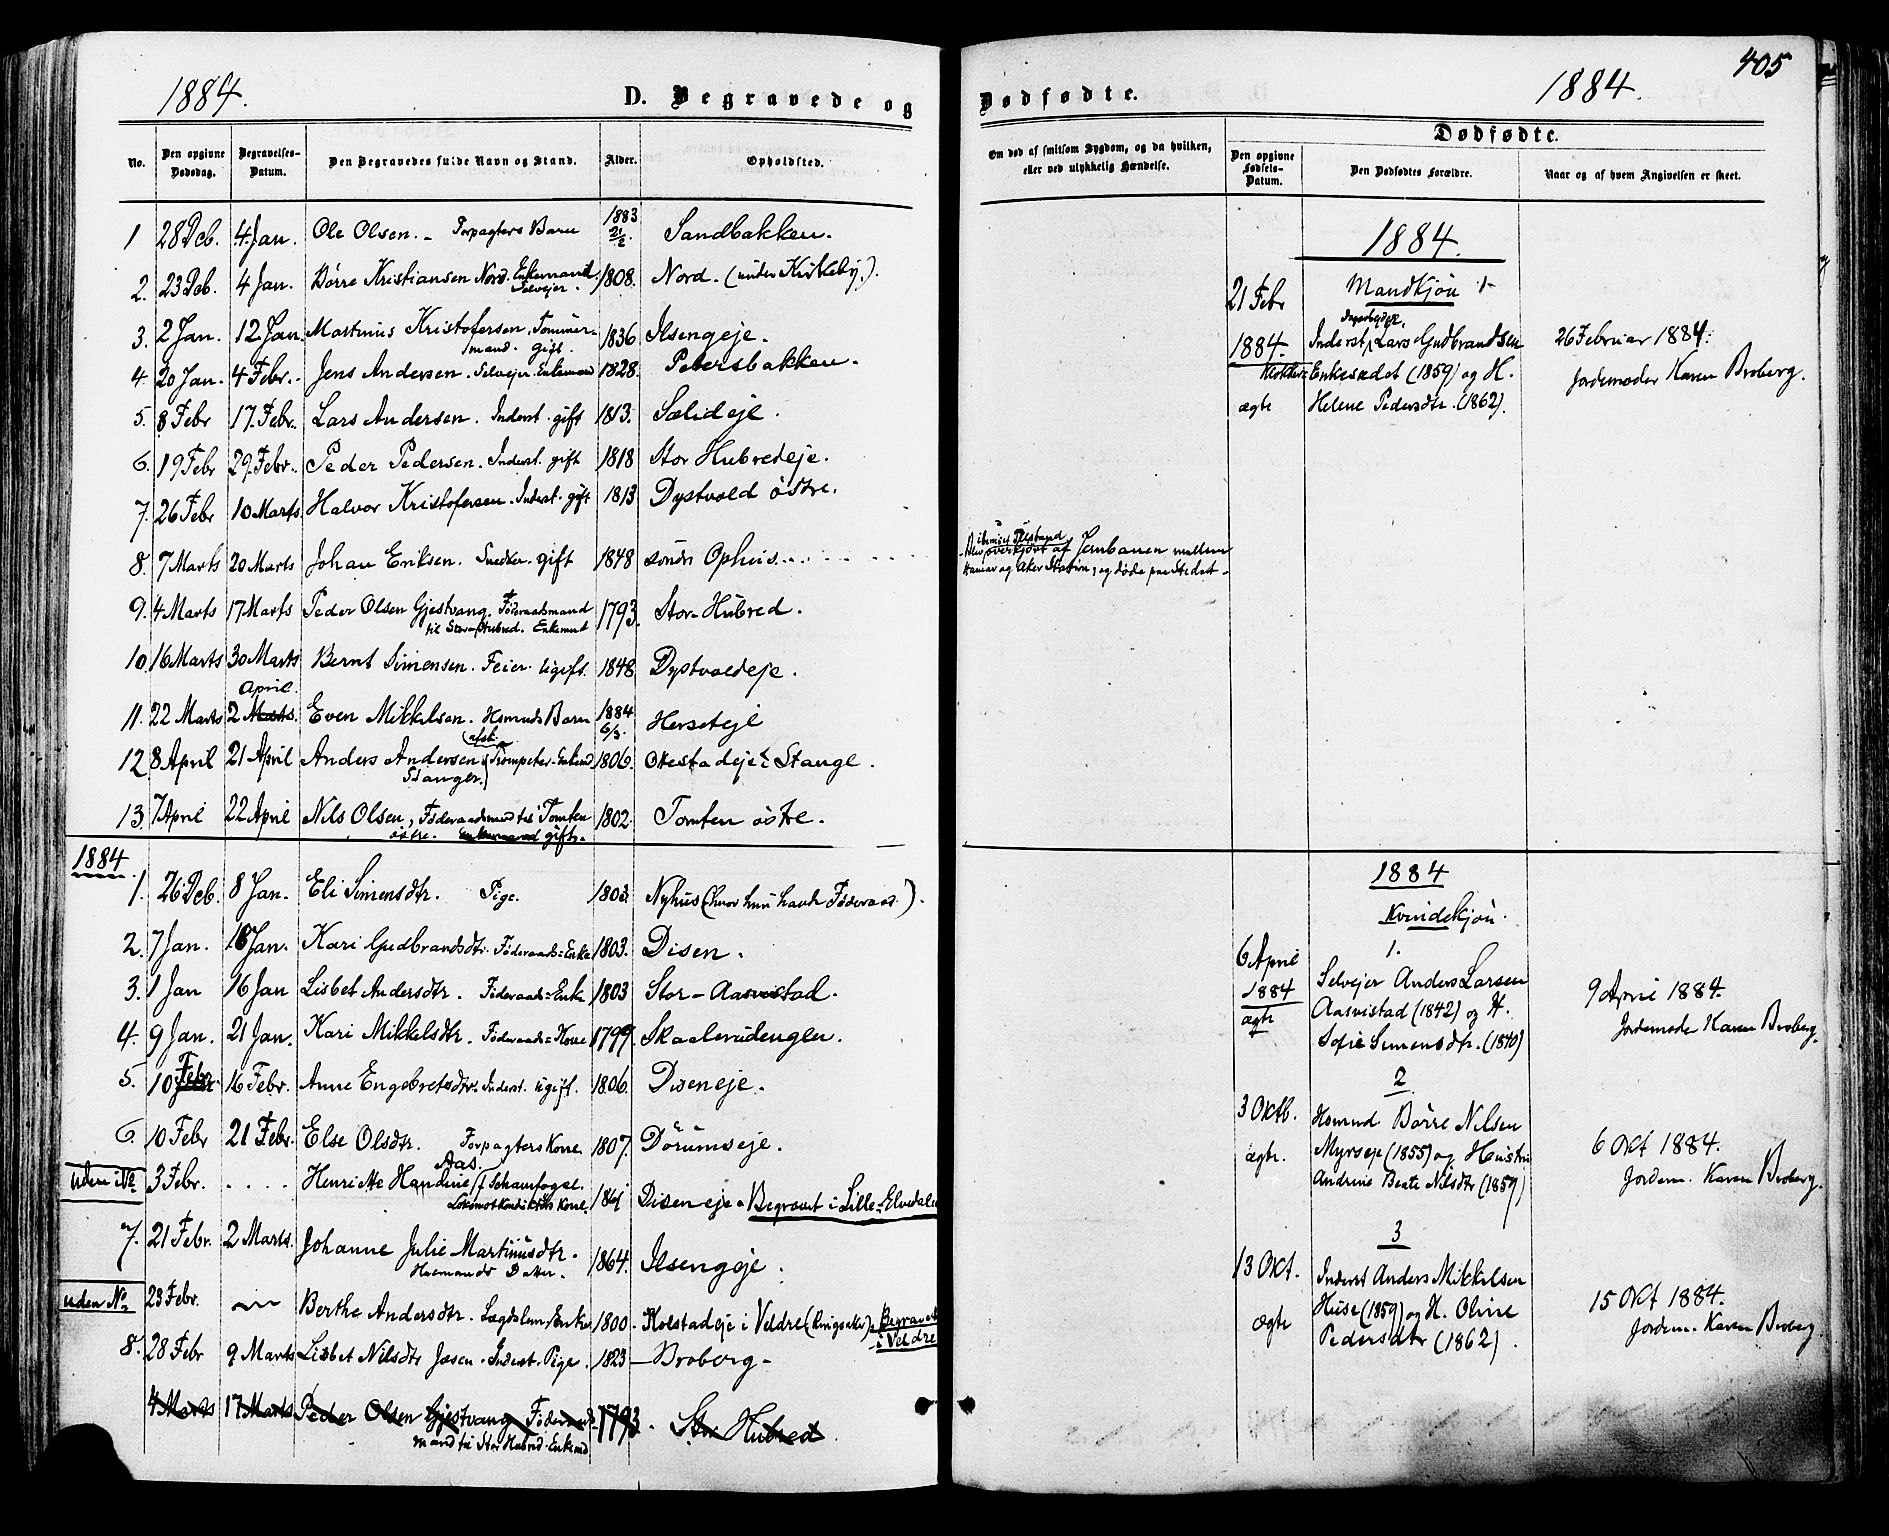 1884.
D. Begravede og
No.
Den opgivne Dødsdag.
Begravelses-Datum.
Den Begravedes fulde Navn og Stand.
Alder.
Opholdsted.
1 28 Dcb. 4. Jan. Ole Olsen. - Forpagters Barn 1883 21/2 Sandbakken.
2. 23 Dcb. 4 Jan. Børre Kristiansen Nord. Enkemand. Selveier. 1808. Nord. (under Kirkeby.).
3. 2 Jan. 12 Jan. Martinus Kristofersen. Tømmermand. gift. 1836 Ilsengeje.
4. 20 Jan. 4 Febr. Jens Andersen. Selvejer. Enkemand 1828. Petersbakken.
5. 8 Febr 17. Febr. Lars Andersen. Inderst. gift 1813. Sælideje.
6. 19 Febr 29. Febr. Peder Pedersen. Inderst. gift 1818 Stor Hubredeje.
7. 26 Febr 10 Marts. Halvor Kristofersen. Inderst. gift 1813 Dystvold østre.
8. 7 Marts 20 Marts Johan Eriksen. Snedker. gift 1848 søndr Ophus.
9. 4 Marts 17 Marts Peder Olsen Gjestvang. Føderaadsmand til Stor-Hubred. Enkemand 1793. Stor-Hubred.
10. 16 Marts 30 Marts Bernt Simensen. Feier. ugift. 1848 Dystvoldeje.
April.
11. 22 Marts 2 Marts. Even Mikkelsen. Hsmnds Barn 1884 6/3. Herseteje
12 8 April 21 April Anders Andersen Stanger. (afsk. Trompeter. Enkemd 1806. Okestadeje i Stange.
13. 7 April 22 April Nils Olsen, Føderaadsmand til Tomten østre. Enkemand gift. 1802. Tomten østre.
1884
1. 26 Dcb. 8 Jan. Eli Simensdtr. Pige. 1803. Nyhus (hvor hun havde Føderaad).
2. 7 Jan. 18 Jan. Kari Gudbrandsdtr. Føderaads=Enke 1803. Disen.
3. 1 Jan 16 Jan Lisbet Andersdtr. Føderaads=Enke 1803 Stor-Aasvestad.
4. 9 Jan. 21 Jan. Kari Mikkelsdtr. Føderaads=Kone 1799. Skaalerudengen.
5. 10 Febr. 16 Febr. Anne Engebretsdtr. Inderst. ugift. 1806. Diseneje.
6. 10 Febr 21 Febr. Else Olsdtr. Forpagters Kone. 1807. Dørumseje.
uden No 3 Febr. .... Henriette Handine Aas f. Schaufogel. Lokomotkonduktørs Kone. 1861 Diseneje. Begravet i Lille-Elvedalen
7. 21 Febr. 2 Marts. Johanne Julie Martinusdtr. Husmands Datter. 1864. Ilsengeje.
uden No. 23 Febr. Berthe Andersdtr. Lægdslem, Enke 1800. Kolstadeje i Veldre (Ringsaker). Begravet i Veldre
8. 28 Febr 9 Marts Lisbet Nilsdtr Jøsen. Inderst. Pige. 1823 Broberg-
4 Marts 17 Marts Peder Olsen Gjestvang Føderaadsmand til Stor Hubred. Enkemd 1793. Stor Hubred
405
1884.
Dødfødte.
Om død af smitsom Sygdom, og da hvilken, eller ved ulykkelig Hændelse.
Dødfødte.
Den opgivne Fødsels-Datum.
Den Dødfødtes Forældre.
Naar og af hvem Angivelsen er skeet.
1884.
Mandkjøn 1
21 Febr 1884. ægte
Inderst, Lars Gudbrandsen
Enkesædet (1859) og H.
Helene Pedersdtr. (1862).
26 Februar 1884.
Jordemoder Karen Broberg.
Blev overkjørt af Jernbanen mellem
Hamar og Aker Station; og døde paa Stedet-
1884
Kvindekjøn.
1.
6 April 1884 ægte
Selvejer Anders Larsen
Aasvistad (1842) og H.
Sofie Simensdtr. (1840)
9 April 1884.
Jordemode Karen Broberg.
2
3 Oktb. ægte.
Hsmnd Børre Nilsen
Myrseje (1855) og Hustru
Andrine Beate Nilsdtr (1859)
6 Okt 1884.
Jordem. Karen Broberg.
3
13 Okt. ægte
Inderst Anders Mikkelsen
Huse (1859) og H. Oline
Pedersdtr (1862).
15 Okt 1884.
Jordem. Karen Broberg.